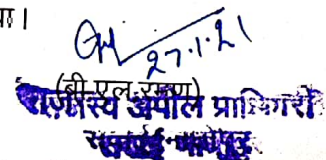 या।
27.1.21
(बी.एल.रमण)
राजस्व अपील प्राधिकारी
सवाई माधोपुर